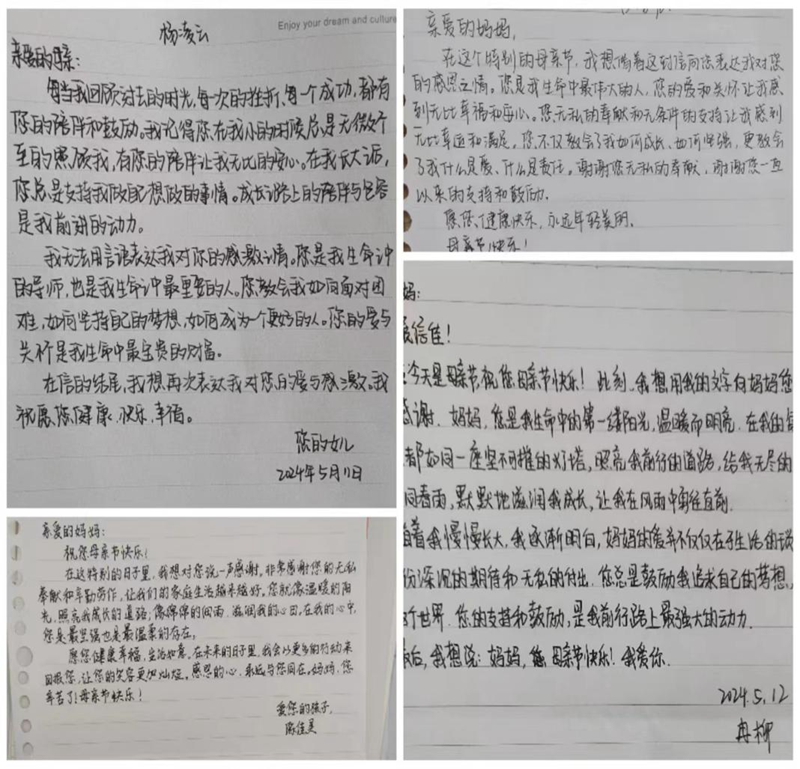 Enjoy your dream and culture
杨凌云
亲爱的母亲：
每当我回顾过去的时光，每一次的挫折，每一个成功，都有
您的陪伴和鼓励。我记得您在我小的时候总是无微不
至的照顾我，有您的陪伴让我无比的安心。在我长大后，
您总是支持我做自己想做的事情。成长路上的陪伴与包容
是我前进的动力。
我无法用言语表达我对您的感激之情。您是我生命中
的导师，也是我生命中最重要的人。您教会我如何面对困
难，如何坚持自己的梦想，如何成为一个更好的人。您的爱与
关怀是我生命中最宝贵的财富。
在信的结尾，我想再次表达我对您的爱与感激。我
祝愿您健康、快乐、幸福。
您的女儿
2024年5月11日
亲爱的妈妈，
在这个特别的母亲节，我想借着这封信向您表达我对您
的感恩之情。您是我生命中最伟大的人，您的爱和关怀让我感
到无比幸福和安心。您无私的奉献和无条件的支持让我感到
无比幸运和满足。您不仅教会了我如何成长、如何坚强，更教会
了我什么是爱、什么是责任。谢谢您无私的奉献，谢谢您一直
以来的支持和鼓励。
愿您健康快乐，永远年轻美丽。
母亲节快乐！
亲爱的妈妈：
祝您母亲节快乐！
在这特别的日子里，我想对您说一声感谢。非常感谢您的无私
奉献和辛勤劳作，让我们的家庭生活越来越好。您就像温暖的阳
光，照亮我成长的道路；像绵绵的细雨，滋润我的心田。在我的心中，
您是最坚强也是最温柔的存在。
愿您健康幸福，生活如意。在未来的日子里，我会以更多的行动来
回报您，让您的笑容更加灿烂。感恩的心，永远与您同在。妈妈，您
辛苦了！母亲节快乐！
爱您的孩子，
妈：
信佳！
今天是母亲节，祝您母亲节快乐！此刻，我想用我的文字向妈妈您
感谢．妈妈，您是我生命中的第一缕阳光，温暖而明亮．在我的
都如同一座坚不可摧的灯塔，照亮我前行的道路，给我无尽的
同春雨，默默地滋润我成长，让我在风雨中勇往直前．
着我慢慢长大，我逐渐明白，妈妈的爱并不仅仅在于生活的
份深沉的期待和无私的付出．您总是鼓励我追求自己的梦想，
个世界．您的支持和鼓励，是我前行路上最强大的动力．
后，我想说：妈妈，您 母亲节快乐！我爱你．
2024.5.12
冉柳